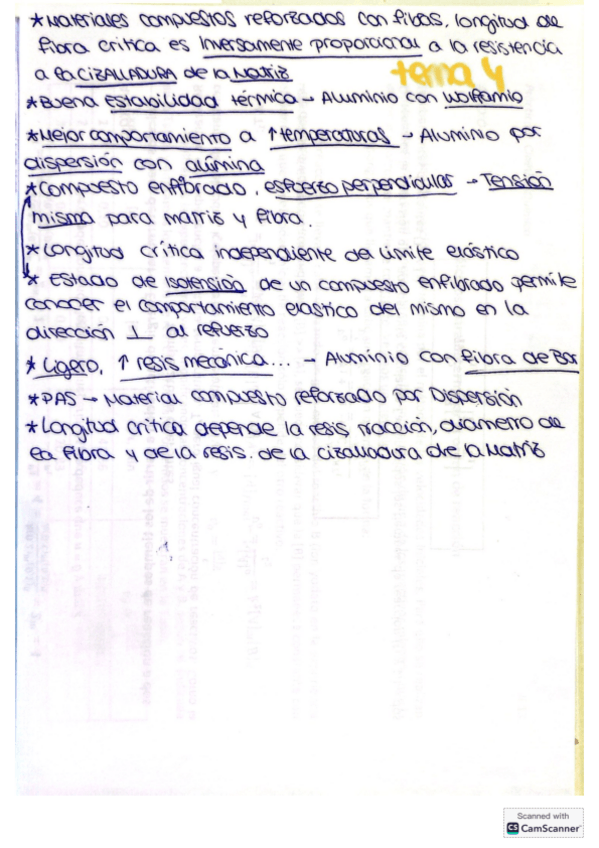 * Materiales compuestos reforzados con fibas, longitud de
fibra crítica es Inversamente proporcional a la resistencia
a la CIZALLADURA de la Matriz
tema 4
* Buena estabilidad térmica → Aluminio con wolframio
* Mejor comportamiento a ↑ temperaturas → Aluminio por
dispersión con alúmina
* Compuesto enfibrado, esfuerzo perpendicular → Tensión
misma para matriz y fibra.
* Longitud crítica independiente del límite elástico
* estado de Isotensión de un compuesto enfibrado permite
conocer el comportamiento elastico del mismo en la
dirección ⊥ al refuerzo
* Ligero, ↑ resis mecánica... → Aluminio con fibra de Bor
* PAS → Material compuesto reforzado por Dispersión
* Longitud crítica depende la resis, tracción, diametro de
la fibra y de la resis. de la cizalladura de la Matriz
Scanned with
CS CamScanner